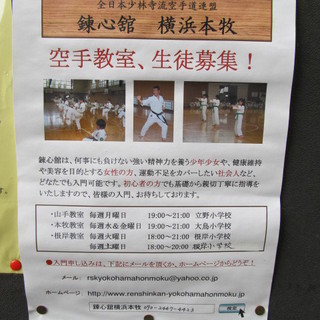 全日本少林寺流空手道連盟
錬心舘　横浜本牧
空手教室、生徒募集！
錬心舘は、何事にも負けない強い精神力を養う少年少女や、健康維持
や美容を目的とする女性の方、運動不足をカバーしたい社会人など、
どなたでも入門可能です。初心者の方でも基礎から親切丁寧に指導を
いたしますので、皆様の入門、お待ちしております。
・山手教室　毎週月曜日　19:00～21:00　立野小学校
・本牧教室　毎週水&金曜日　19:00～21:00　大鳥小学校
・根岸教室　毎週金曜日　18:00～21:00　根岸小学校
毎週土曜日　18:00～20:00　根岸小学校
●入門申し込みは、下記にメールを頂くか、ホームページからどうぞ！
メール：　rskyokohamahonmoku@yahoo.co.jp
ホームページ：　http://www.renshinkan-yokohamahonmoku.jp
錬心舘横浜本牧
検索